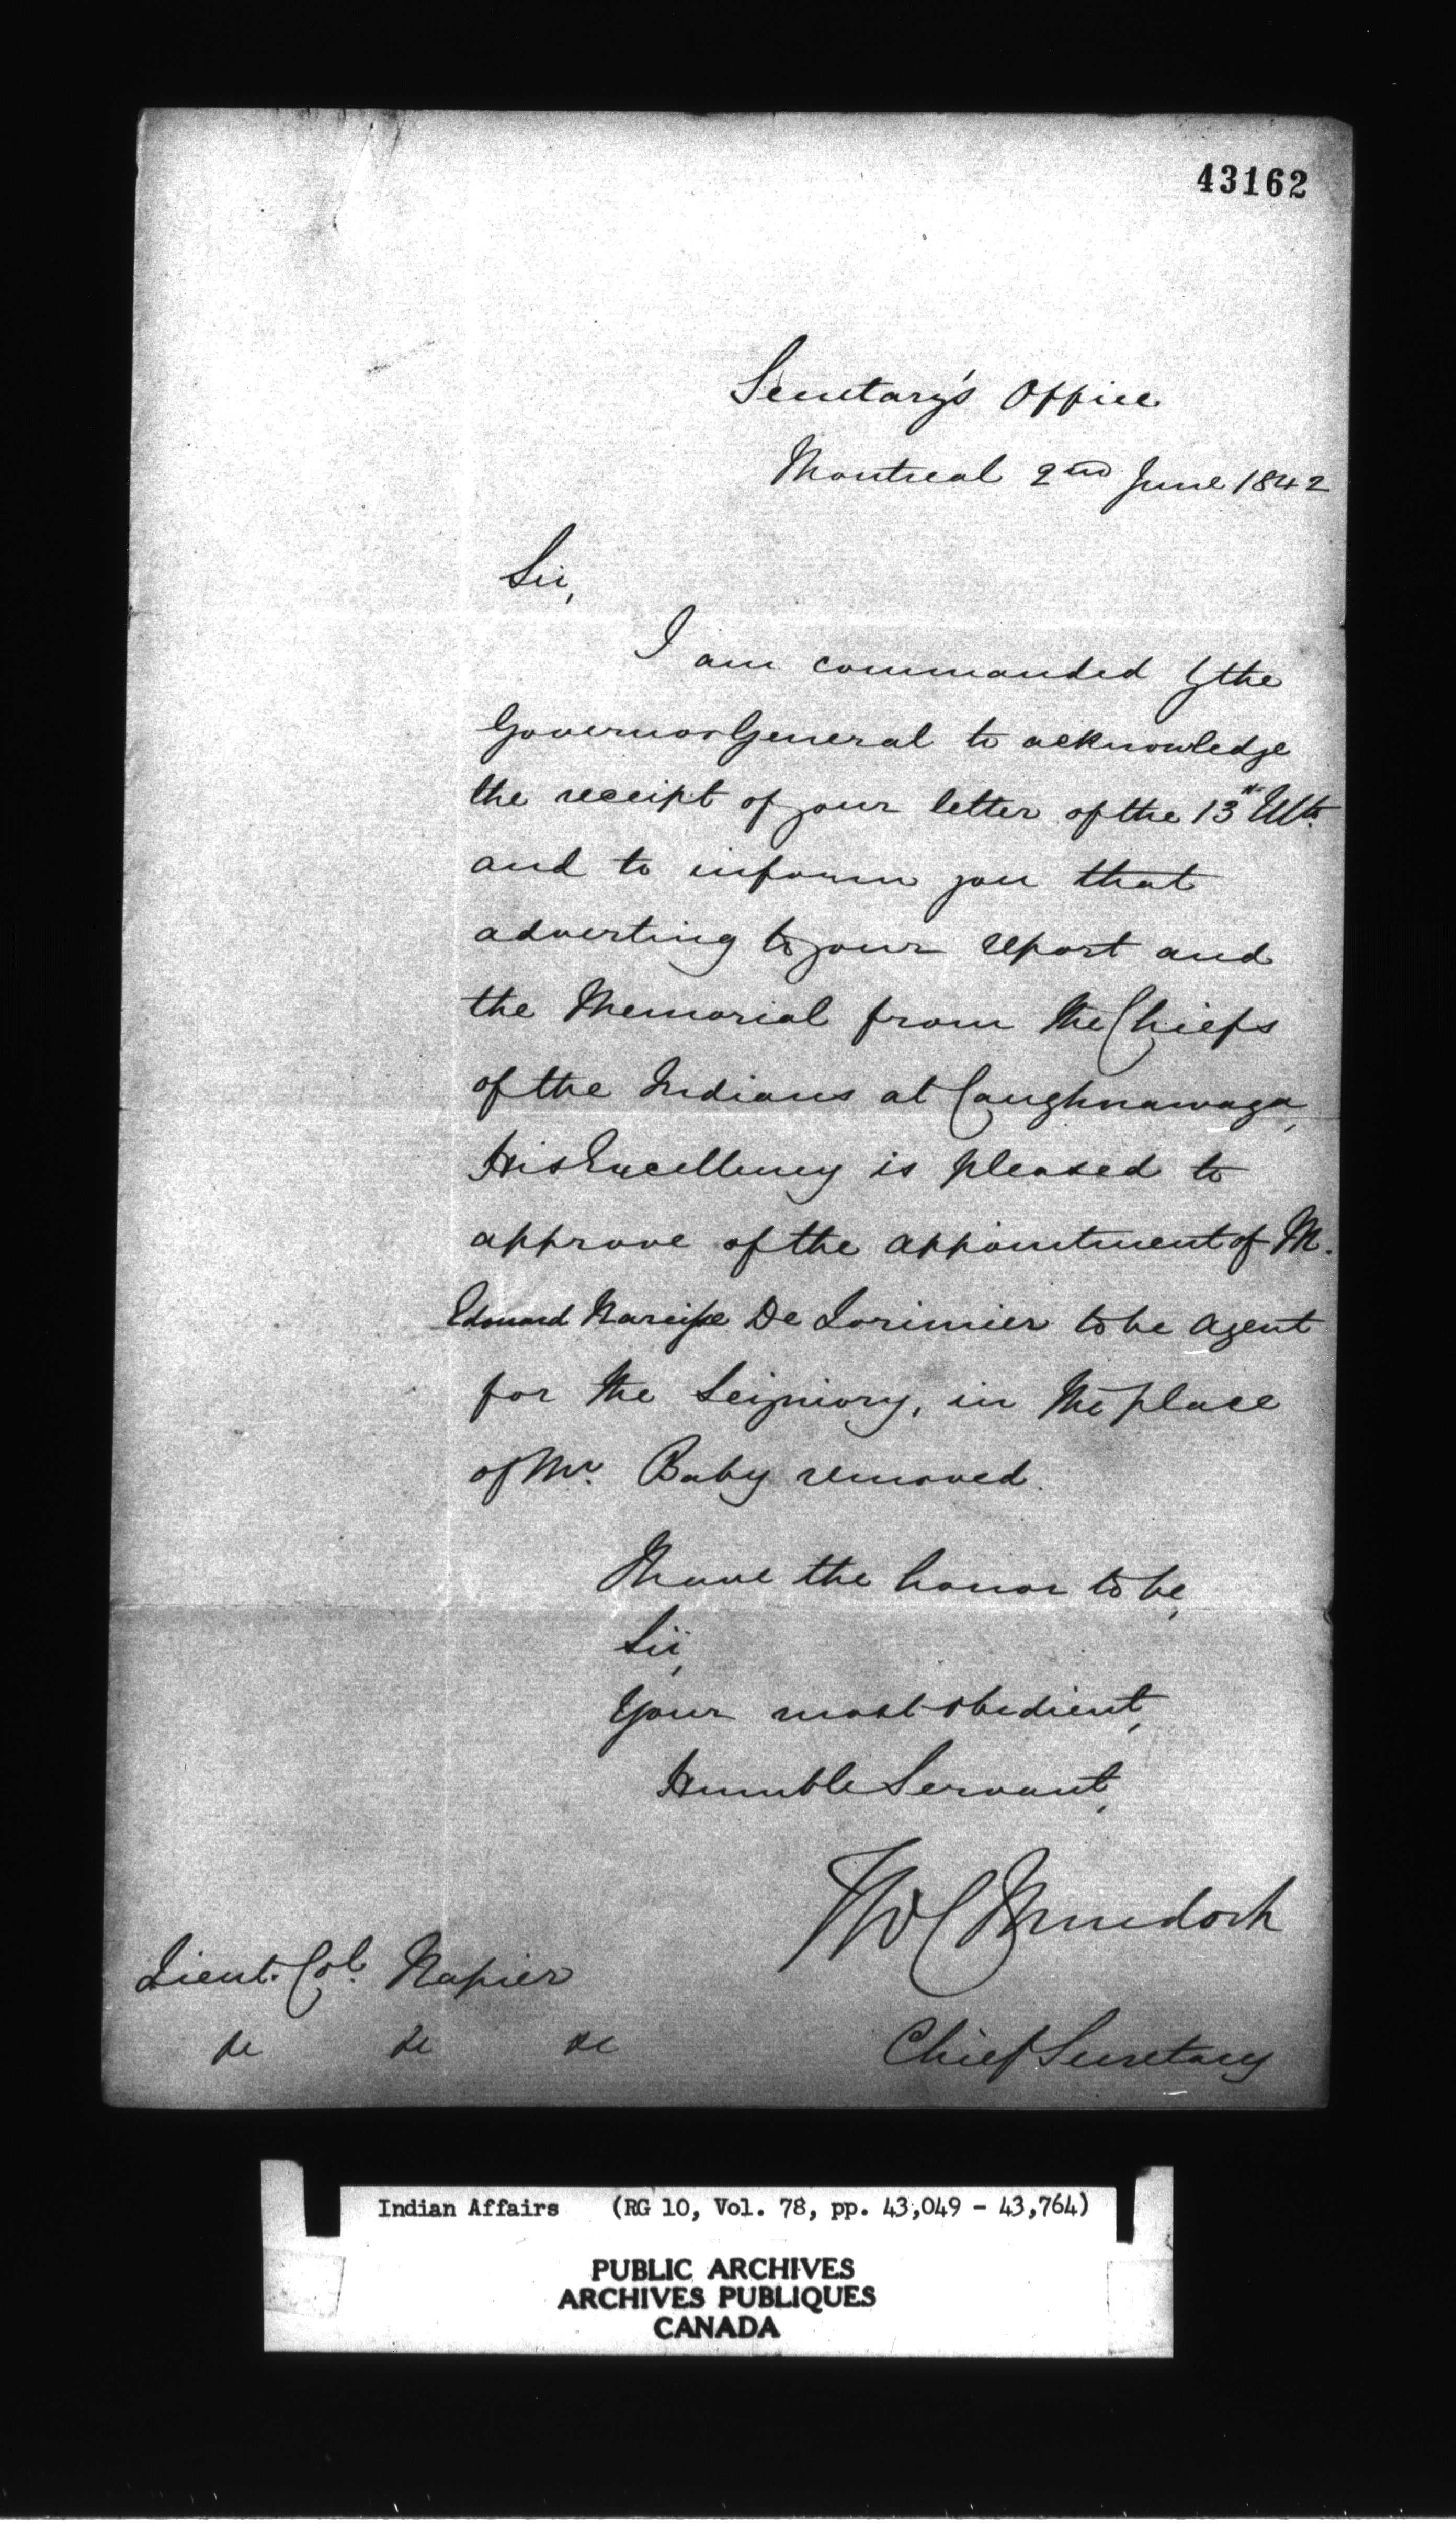 43162
Secretary's Office
Montreal 2nd June 1842
Sir,
I am commanded by the
Governor General to acknowledge
the receipt of your letter of the 13th Ulto.
and to inform you that
adverting to your report and
the Memorial from the Chiefs
of the Indians at Caughnawaga,
His Excellency is pleased to
approve of the appointment of M.
Edouard Narcisse De Lorimier to be Agent
for the Seigniory, in the place
of Mr. Baby removed.
I have the honor to be,
Sir,
Your most obedient,
Humble Servant,
T W C Murdoch
Chief Secretary
Lieut. Col. Napier
&c &c &c
Indian Affairs (RG 10, Vol. 78, pp. 43,049 - 43,764)
PUBLIC ARCHIVES
ARCHIVES PUBLIQUES
CANADA